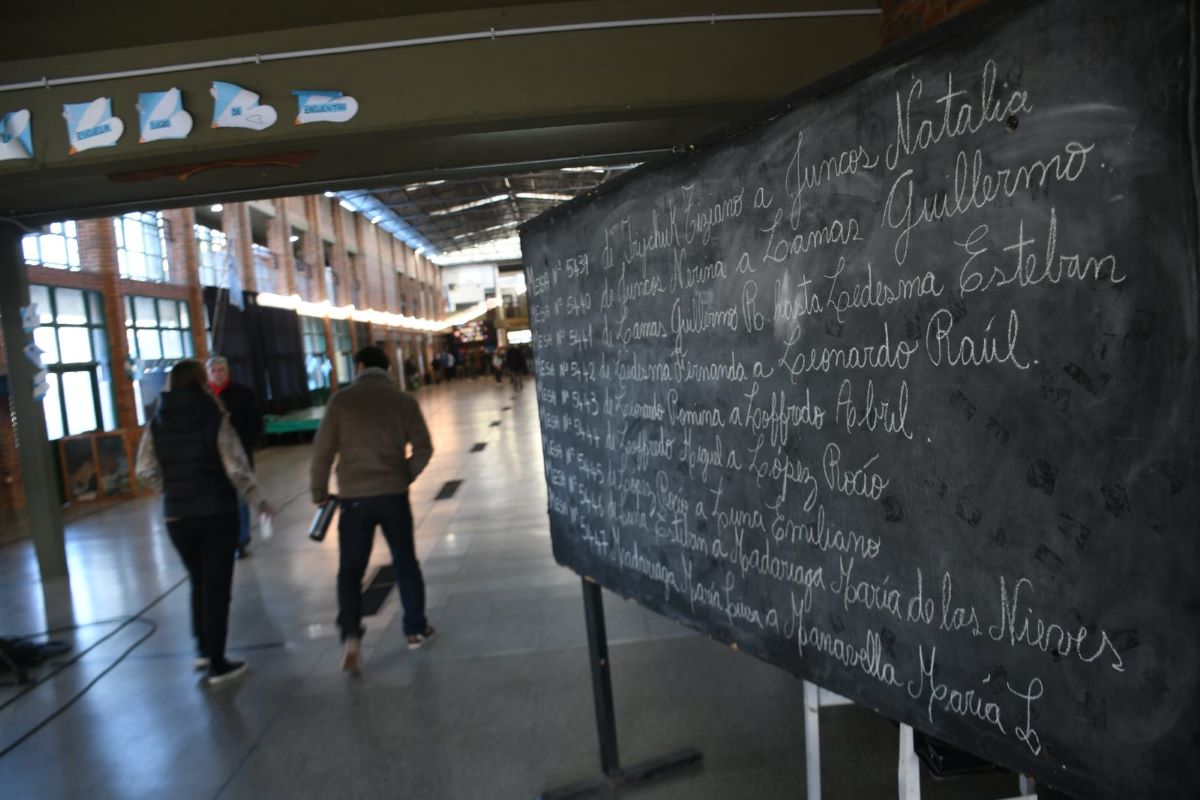 ESCUELA
LUGAR
DE
ENCUENTRO
MESA Nº 5439 de Tryschuk Tiziano a Juncos Natalia
MESA Nº 5440 de Juncos Norina a Lamas Guillermo.
MESA Nº 5441 de Lamas Guillermo R. hasta Ledesma Esteban
MESA Nº 5442 de Ledesma Fernanda a Leonardo Raúl.
MESA Nº 5443 de Leonardo Romina a Loffredo Abril.
MESA Nº 5444 de Loffredo Miguel a López Rocío
MESA Nº 5445 de López Rocío a Luna Emiliano
MESA Nº 5446 de Luna Esteban a Madariaga María de las Nieves
Nº 5447 Madariaga María Luisa a Manavella María L